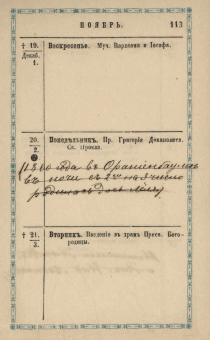 НОЯБРЬ.
113
† 19.
Декаб.
1.
Воскресенье. Муч. Варлаама и Іосафа.
20.
2.
Понедѣльникъ. Пр. Григорія Декаполита.
Св. Прокла.
1860 года въ Ораніенбаумѣ
въ ночи съ 2го на число
родилась дочь
† 21.
3.
Вторникъ. Введеніе въ храмъ Пресв. Бого-
родицы.